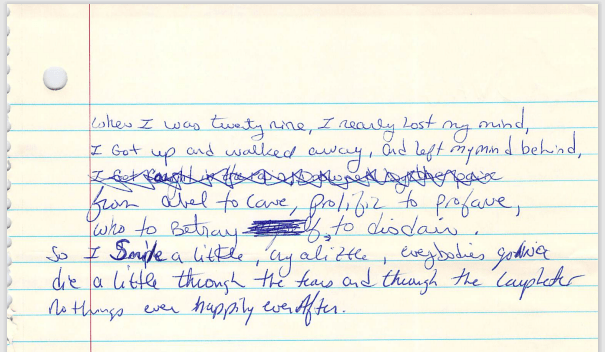 when I was twenty nine, I nearly Lost my mind,
I Got up and walked away, and left my mind behind,
I Got caught in the
from abel to cane, prolific to profane,
who to Betray if, to disdain.
So I Smile a little, cry a little, everybodies gonna
die a little through the tears and through the laughter
Nothings ever happily ever After.